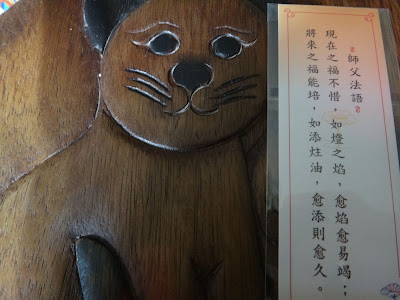 師父法語
現在之福不惜，如燈之焰，愈焰愈易竭；
將來之福能培，如添炷油，愈添則愈久。